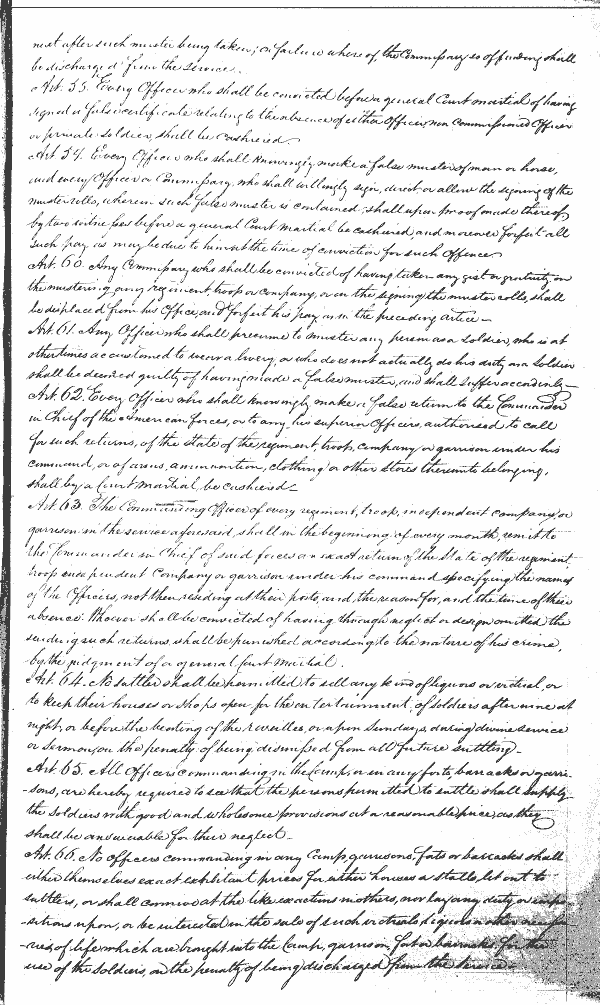 next after such muster being taken; on failure whereof, the Commissary so offending shall
be discharged from the service.
Art. 55. Every Officer who shall be convicted before a general Court martial of having
signed a false certificate relating to the absence of either Officer, non Commissioned Officer
or private soldier, shall be cashiered.
Art 54. Every Officer who shall knowingly make a false muster of man or horse,
and every Officer or Commissary, who shall willingly sign, direct, or allow the signing of the
muster rolls, wherein such false muster is contained, shall upon proof made thereof,
by two witnesses before a general Court Martial be cashiered, and moreover forfeit all
such pay as may be due to him at the time of conviction for such offence
Art. 60. Any Commissary, who shall be convicted of having taken any gift or gratuity on
the mustering any regiment troop or company, or on the signing the muster rolls, shall
be displaced from his Office, and forfeit his pay as in the preceding article—
Art. 61. Any Officer who shall presume to muster any person as a Soldier, who is at
other times accustomed to wear a livery, or who does not actually do his duty as a Soldier
shall be deemed guilty of having made a false muster, and shall suffer accordingly—
Art. 62. Every Officer who shall knowingly make a false return to the Commander
in Chief of the American forces, or to any, his superior Officer, authorised to call
for such returns, of the state of the regiment, troop, company, or garrison under his
command, or of arms, ammunition, clothing or other stores thereunto belonging,
shall by a Court Martial, be cashiered—
Art. 63. The Commanding Officer of every regiment, troop, independent company, or
garrison in the service aforesaid, shall in the beginning of every month, remit to
the Commander in Chief of said forces an exact return of the State of the regiment,
troop independent Company or garrison under his command specifying the names
of the Officers, not then residing at their posts, and, the reason for, and the time of their
absence. Whoever shall be convicted of having through neglect or design omitted the
sending such returns, shall be punished according to the nature of his crime,
by the judgment of a general Court Martial.
Art. 64. No suttler shall be permitted to sell any kind of liquors or victual, or
to keep their houses or shops open, for the entertainment, of soldiers after nine at
night, or before the beating of the reveilles, or upon Sundays, during divine service
or sermon, on the penalty of being dismissed from all future suttling—
Art. 65. All Officers commanding in the Camp, or in any forts, barracks or garri-
-sons, are hereby required to see that the persons permitted to suttle shall supply
the soldiers with good and wholesome provisions at a reasonable price, as they
shall be answerable for their neglect—
Art. 66. No Officers commanding in any Camp, garrisons, forts or barracks shall
either themselves exact exhbitant prices for either houses or stalls, let out to
suttlers, or shall connive at the like exactions in others, nor lay any duty or impo-
-sitions upon, or be interested in the sale of such victuals, liquors or other neces-
-aries of life, which are brought into the Camp, garrison, fort or barracks for the
use of the soldiers, on the penalty of being discharged from the service—